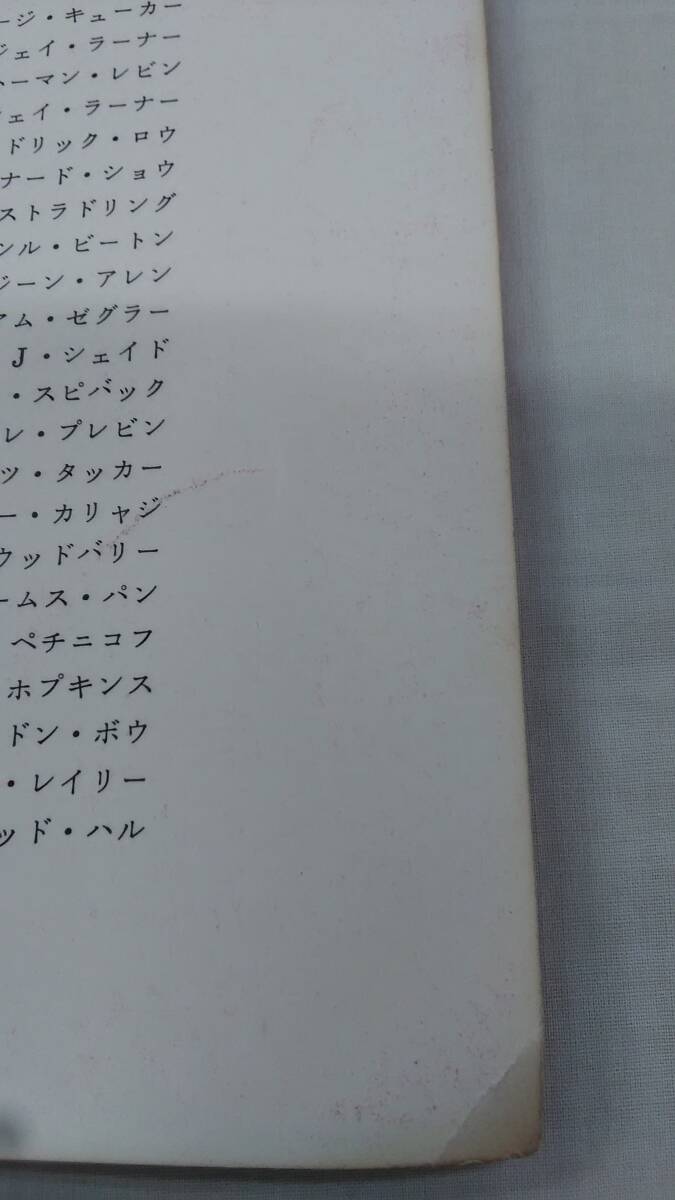 ージ・キューカー
ジェイ・ラーナー
ーマン・レビン
ェイ・ラーナー
ドリック・ロウ
ナード・ショウ
ストラドリング
ル・ビートン
ジーン・アレン
アム・ゼグラー
J・シェイド
・スピバック
レ・プレビン
ツ・タッカー
ー・カリャジ
ウッドバリー
ームス・パン
ペチニコフ
ホプキンス
ドン・ボウ
・レイリー
ッド・ハル